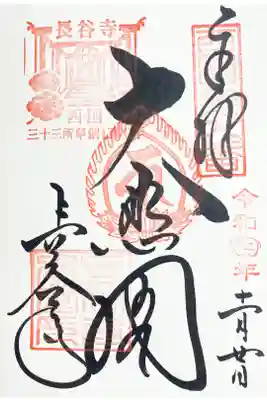 奉拝
令和四年
十一月廿日
大悲閣
長谷寺
長谷寺
西国
三十三所草創